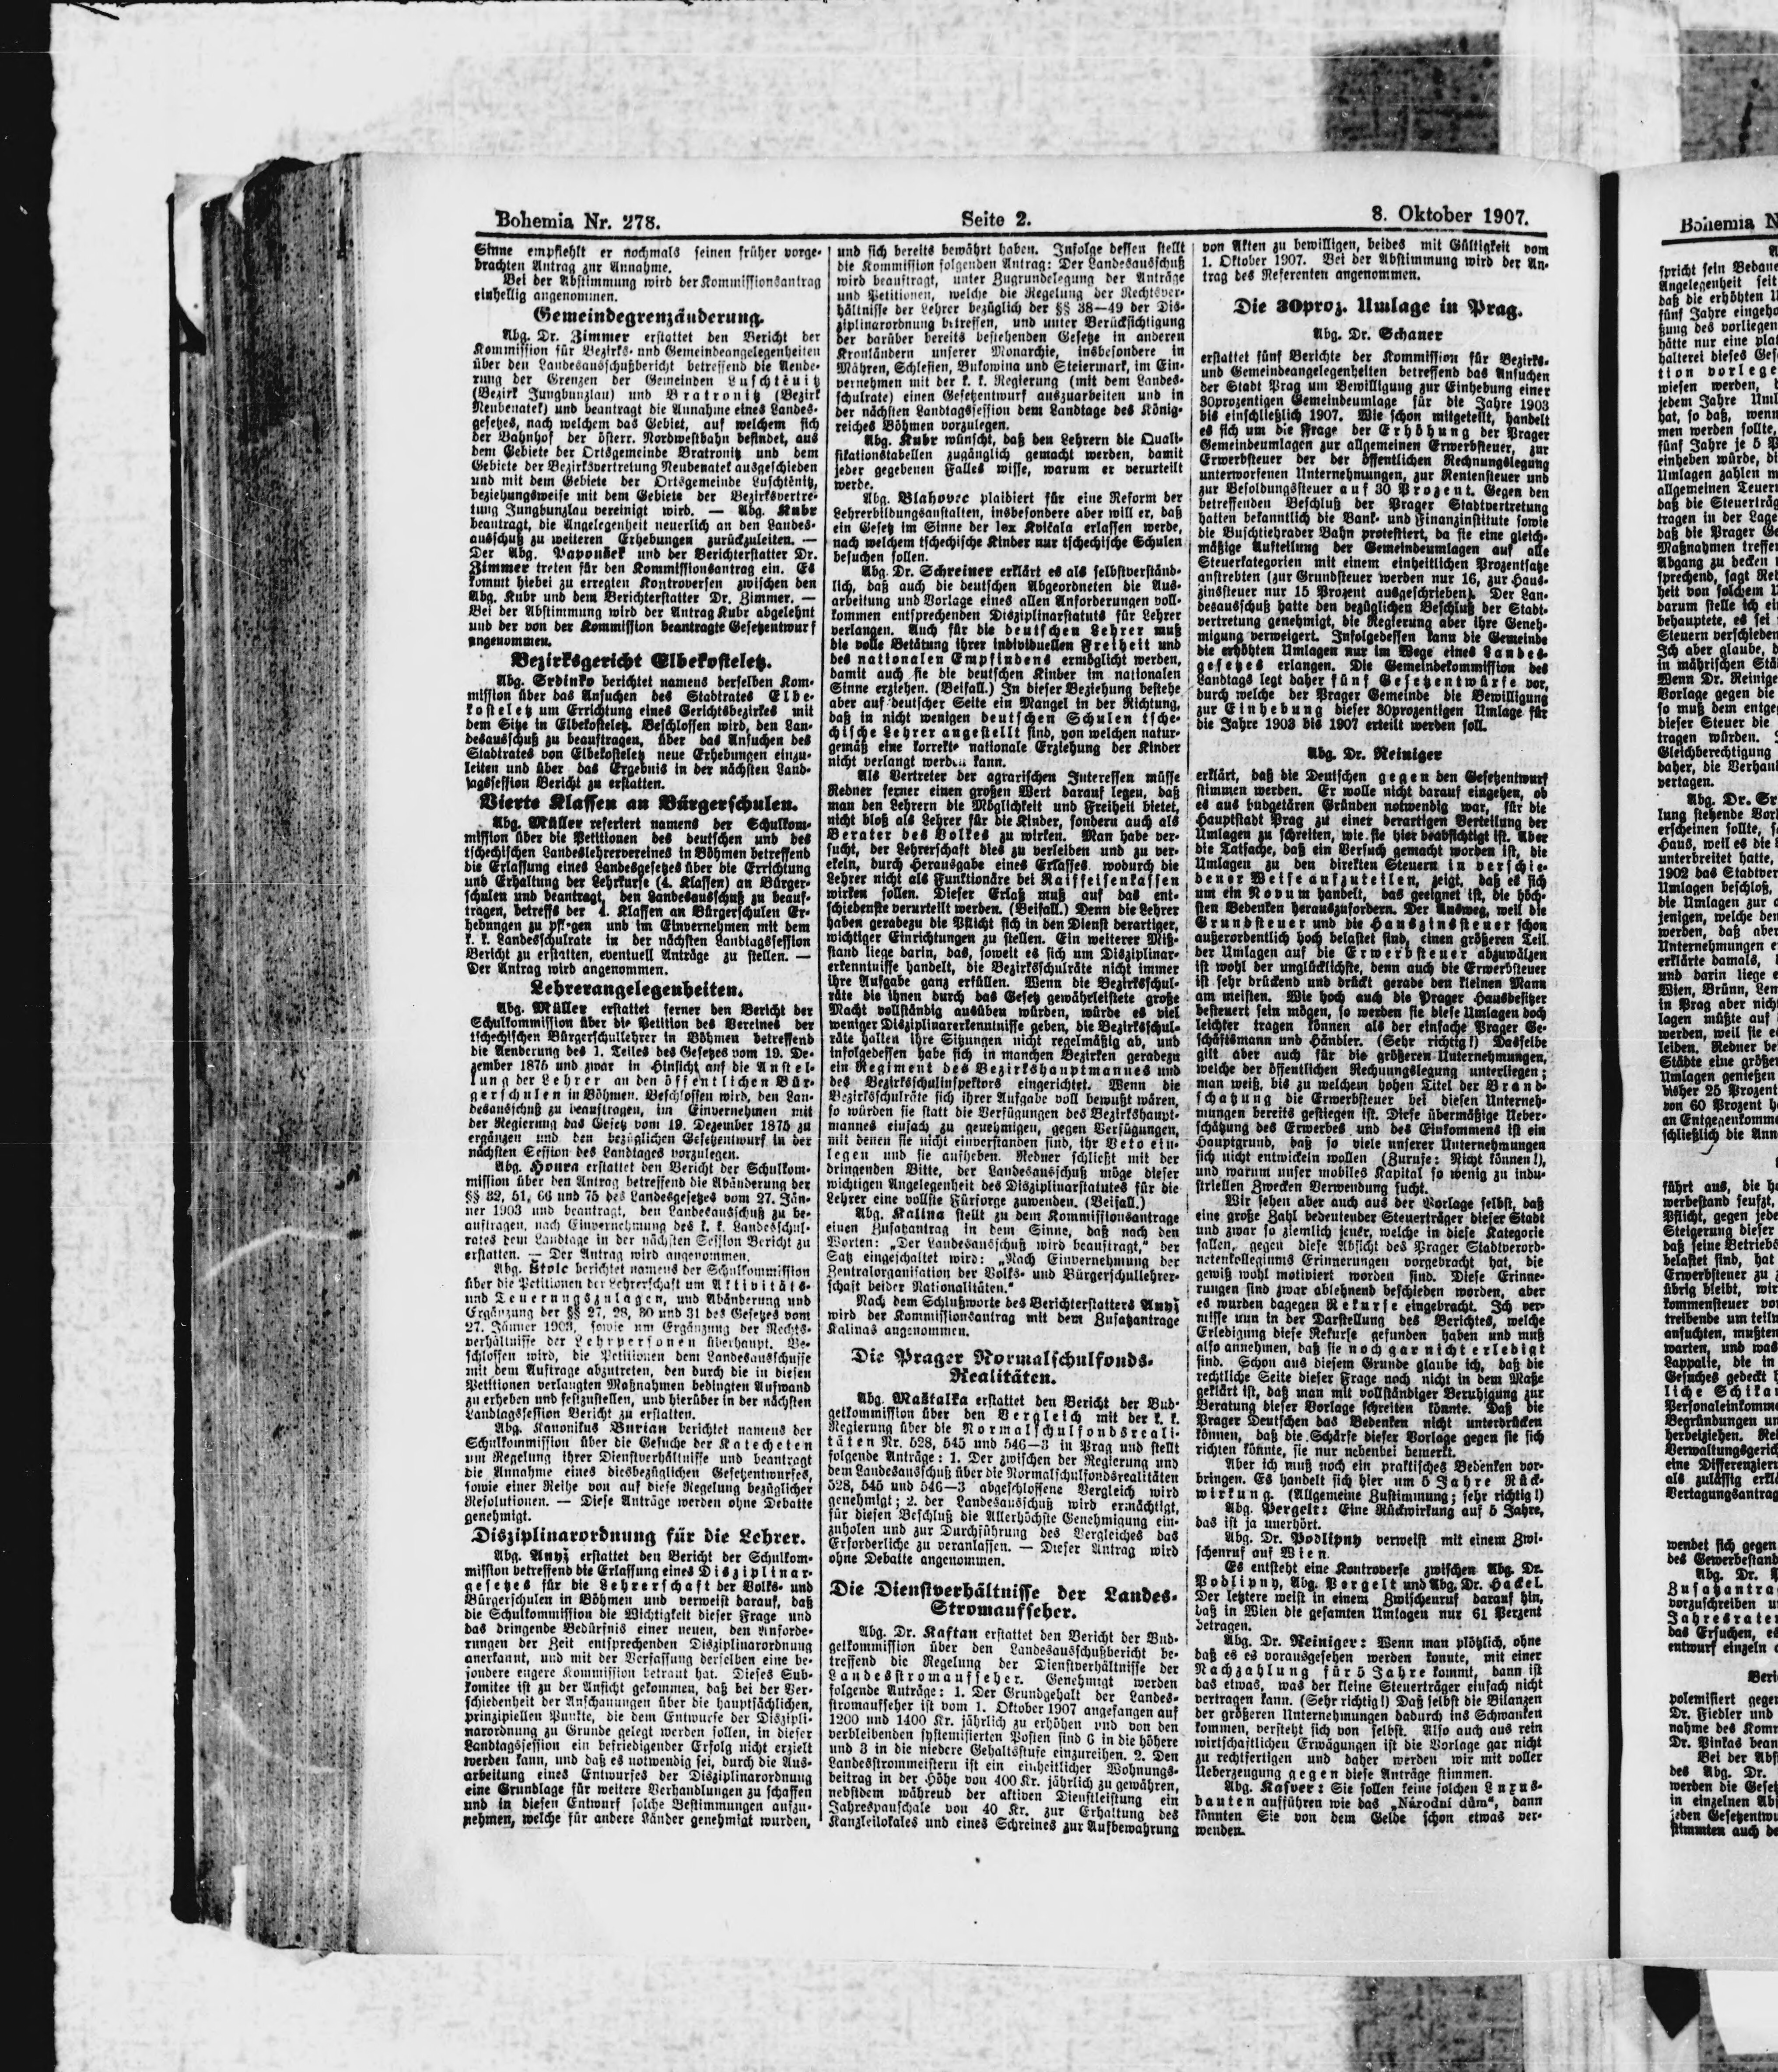 Bohemia Nr. 278.
Seite 2.
8. Oktober 1907.
Sinne empfiehlt er nochmals seinen früher vorge-
brachten Antrag zur Annahme.
Bei der Abstimmung wird der Kommissionsantrag
einhellig angenommen.
Gemeindegrenzänderung.
Abg. Dr. Zimmer erstattet den Bericht der
Kommission für Bezirks- und Gemeindeangelegenheiten
über den Landesausschußbericht betreffend die Aende-
rung der Grenzen der Gemeinden Luschtěnitz
(Bezirk Jungbunzlau) und Bratronitz (Bezirk
Neubenatek) und beantragt die Annahme eines Landes-
gesetzes, nach welchem das Gebiet, auf welchem sich
der Bahnhof der österr. Nordwestbahn befindet, aus
dem Gebiete der Ortsgemeinde Bratronitz und dem
Gebiete der Bezirksvertretung Neubenatek ausgeschieden
und mit dem Gebiete der Ortsgemeinde Luschtěnitz,
beziehungsweise mit dem Gebiete der Bezirksvertre-
tung Jungbunzlau vereinigt wird. — Abg. Kubr
beantragt, die Angelegenheit neuerlich an den Landes-
ausschuß zu weiteren Erhebungen zurückzuleiten. —
Der Abg. Papoušek und der Berichterstatter Dr.
Zimmer treten für den Kommissionsantrag ein. Es
kommt hiebei zu erregten Kontroversen zwischen den
Abg. Kubr und dem Berichterstatter Dr. Zimmer. —
Bei der Abstimmung wird der Antrag Kubr abgelehnt
und der von der Kommission beantragte Gesetzentwurf
angenommen.
Bezirksgericht Elbekosteletz.
Abg. Srdinko berichtet namens derselben Kom-
mission über das Ansuchen des Stadtrates Elbe-
kosteletz um Errichtung eines Gerichtsbezirkes mit
dem Sitze in Elbekosteletz. Beschlossen wird, den Lan-
desausschuß zu beauftragen, über das Ansuchen des
Stadtrates von Elbekosteletz neue Erhebungen einzu-
leiten und über das Ergebnis in der nächsten Land-
tagssession Bericht zu erstatten.
Vierte Klassen an Bürgerschulen.
Abg. Müller referiert namens der Schulkom-
mission über die Petitionen des deutschen und des
tschechischen Landeslehrervereines in Böhmen betreffend
die Erlassung eines Landesgesetzes über die Errichtung
und Erhaltung der Lehrkurse (4. Klassen) an Bürger-
schulen und beantragt, den Landesausschuß zu beauf-
tragen, betreffs der 4. Klassen an Bürgerschulen Er-
hebungen zu pflegen und im Einvernehmen mit dem
k. k. Landesschulrate in der nächsten Landtagssession
Bericht zu erstatten, eventuell Anträge zu stellen. —
Der Antrag wird angenommen.
Lehrerangelegenheiten.
Abg. Müller erstattet ferner den Bericht der
Schulkommission über die Petition des Vereines der
tschechischen Bürgerschullehrer in Böhmen betreffend
die Aenderung des 1. Teiles des Gesetzes vom 19. De-
zember 1875 und zwar in Hinsicht auf die Anstel-
lung der Lehrer an den öffentlichen Bür-
gerschulen in Böhmen. Beschlossen wird, den Lan-
desausschuß zu beauftragen, im Einvernehmen mit
der Regierung das Gesetz vom 19. Dezember 1875 zu
ergänzen und den bezüglichen Gesetzentwurf in der
nächsten Session des Landtages vorzulegen.
Abg. Houra erstattet den Bericht der Schulkom-
mission über den Antrag betreffend die Abänderung der
§§ 32, 51, 66 und 75 des Landesgesetzes vom 27. Jän-
ner 1903 und beantragt, den Landesausschuß zu be-
auftragen, nach Einvernehmung des k. k. Landesschul-
rates dem Landtage in der nächsten Session Bericht zu
erstatten. — Der Antrag wird angenommen.
Abg. Stolc berichtet namens der Schulkommission
über die Petitionen der Lehrerschaft um Aktivitäts-
und Teuerungszulagen, und Abänderung und
Ergänzung der §§ 27, 28, 30 und 31 des Gesetzes vom
27. Jänner 1903, sowie um Ergänzung der Rechts-
verhältnisse der Lehrpersonen überhaupt. Be-
schlossen wird, die Petitionen dem Landesausschusse
mit dem Auftrage abzutreten, den durch die in diesen
Petitionen verlangten Maßnahmen bedingten Aufwand
zu erheben und festzustellen, und hierüber in der nächsten
Landtagssession Bericht zu erstatten.
Abg. Kanonikus Burian berichtet namens der
Schulkommission über die Gesuche der Katecheten
um Regelung ihrer Dienstverhältnisse und beantragt
die Annahme eines diesbezüglichen Gesetzentwurfes,
sowie einer Reihe von auf diese Regelung bezüglicher
Resolutionen. — Diese Anträge werden ohne Debatte
genehmigt.
Disziplinarordnung für die Lehrer.
Abg. Anyž erstattet den Bericht der Schulkom-
mission betreffend die Erlassung eines Disziplinar-
gesetzes für die Lehrerschaft der Volks- und
Bürgerschulen in Böhmen und verweist darauf, daß
die Schulkommission die Wichtigkeit dieser Frage und
das dringende Bedürfnis einer neuen, den Anforde-
rungen der Zeit entsprechenden Disziplinarordnung
anerkannt, und mit der Verfassung derselben eine be-
sondere engere Kommission betraut hat. Dieses Sub-
komitee ist zu der Ansicht gekommen, daß bei der Ver-
schiedenheit der Anschauungen über die hauptsächlichen,
prinzipiellen Punkte, die dem Entwurfe der Diszipli-
narordnung zu Grunde gelegt werden sollen, in dieser
Landtagssession ein befriedigender Erfolg nicht erzielt
werden kann, und daß es notwendig sei, durch die Aus-
arbeitung eines Entwurfes der Disziplinarordnung
eine Grundlage für weitere Verhandlungen zu schaffen
und in diesen Entwurf solche Bestimmungen aufzu-
nehmen, welche für andere Länder genehmigt wurden,
und sich bereits bewährt haben. Infolge dessen stellt
die Kommission folgenden Antrag: Der Landesausschuß
wird beauftragt, unter Zugrundelegung der Anträge
und Petitionen, welche die Regelung der Rechtsver-
hältnisse der Lehrer bezüglich der §§ 38—49 der Dis-
ziplinarordnung betreffen, und unter Berücksichtigung
der darüber bereits bestehenden Gesetze in anderen
Kronländern unserer Monarchie, insbesondere in
Mähren, Schlesien, Bukowina und Steiermark, im Ein-
vernehmen mit der k. k. Regierung (mit dem Landes-
schulrate) einen Gesetzentwurf auszuarbeiten und in
der nächsten Landtagssession dem Landtage des König-
reiches Böhmen vorzulegen.
Abg. Kubr wünscht, daß den Lehrern die Quali-
fikationstabellen zugänglich gemacht werden, damit
jeder gegebenen Falles wisse, warum er verurteilt
werde.
Abg. Blahovec plaidiert für eine Reform der
Lehrerbildungsanstalten, insbesondere aber will er, daß
ein Gesetz im Sinne der lex Kvičala erlassen werde,
nach welchem tschechische Kinder nur tschechische Schulen
besuchen sollen.
Abg. Dr. Schreiner erklärt es als selbstverständ-
lich, daß auch die deutschen Abgeordneten die Aus-
arbeitung und Vorlage eines allen Anforderungen voll-
kommen entsprechenden Disziplinarstatuts für Lehrer
verlangen. Auch für die deutschen Lehrer muß
die volle Betätung ihrer individuellen Freiheit und
des nationalen Empfindens ermöglicht werden,
damit auch sie die deutschen Kinder im nationalen
Sinne erziehen. (Beifall.) In dieser Beziehung bestehe
aber auf deutscher Seite ein Mangel in der Richtung,
daß in nicht wenigen deutschen Schulen tsche-
chische Lehrer angestellt sind, von welchen natur-
gemäß eine korrekte nationale Erziehung der Kinder
nicht verlangt werden kann.
Als Vertreter der agrarischen Interessen müsse
Redner ferner einen großen Wert darauf legen, daß
man den Lehrern die Möglichkeit und Freiheit bietet,
nicht bloß als Lehrer für die Kinder, sondern auch als
Berater des Volkes zu wirken. Man habe ver-
sucht, der Lehrerschaft dies zu verleiden und zu ver-
ekeln, durch Herausgabe eines Erlasses, wodurch die
Lehrer nicht als Funktionäre bei Raiffeisenkassen
wirken sollen. Dieser Erlaß muß auf das ent-
schiedenste verurteilt werden. (Beifall.) Denn die Lehrer
haben geradezu die Pflicht sich in den Dienst derartiger,
wichtiger Einrichtungen zu stellen. Ein weiterer Miß-
stand liege darin, das, soweit es sich um Disziplinar-
erkenntnisse handelt, die Bezirksschulräte nicht immer
ihre Aufgabe ganz erfüllen. Wenn die Bezirksschul-
räte die ihnen durch das Gesetz gewährleistete große
Macht vollständig ausüben würden, würde es viel
weniger Disziplinarerkenntnisse geben, die Bezirksschul-
räte halten ihre Sitzungen nicht regelmäßig ab, und
infolgedessen habe sich in manchen Bezirken geradezu
ein Regiment des Bezirkshauptmannes und
des Bezirksschulinspektors eingerichtet. Wenn die
Bezirksschulräte sich ihrer Aufgabe voll bewußt wären,
so würden sie statt die Verfügungen des Bezirkshaupt-
mannes einfach zu genehmigen, gegen Verfügungen,
mit denen sie nicht einverstanden sind, ihr Veto ein-
legen und sie aufheben. Redner schließt mit der
dringenden Bitte, der Landesausschuß möge dieser
wichtigen Angelegenheit des Disziplinarstatutes für die
Lehrer eine vollste Fürsorge zuwenden. (Beifall.)
Abg. Kalina stellt zu dem Kommissionsantrage
einen Zusatzantrag in dem Sinne, daß nach den
Worten: „Der Landesausschuß wird beauftragt,“ der
Satz eingeschaltet wird: „Nach Einvernehmung der
Zentralorganisation der Volks- und Bürgerschullehrer-
schaft beider Nationalitäten.“
Nach dem Schlußworte des Berichterstatters Anyž
wird der Kommissionsantrag mit dem Zusatzantrage
Kalinas angenommen.
Die Prager Normalschulfonds-
Realitäten.
Abg. Maštalka erstattet den Bericht der Bud-
getkommission über den Vergleich mit der k. k.
Regierung über die Normalschulfondsreali-
täten Nr. 528, 545 und 546—3 in Prag und stellt
folgende Anträge: 1. Der zwischen der Regierung und
dem Landesausschuß über die Normalschulfondsrealitäten
528, 545 und 546—3 abgeschlossene Vergleich wird
genehmigt; 2. der Landesausschuß wird ermächtigt,
für diesen Beschluß die Allerhöchste Genehmigung ein-
zuholen und zur Durchführung des Vergleiches das
Erforderliche zu veranlassen. — Dieser Antrag wird
ohne Debatte angenommen.
Die Dienstverhältnisse der Landes-
Stromaufseher.
Abg. Dr. Kaftan erstattet den Bericht der Bud-
getkommission über den Landesausschußbericht be-
treffend die Regelung der Dienstverhältnisse der
Landesstromaufseher. Genehmigt werden
folgende Anträge: 1. Der Grundgehalt der Landes-
stromaufseher ist vom 1. Oktober 1907 angefangen auf
1200 und 1400 Kr. jährlich zu erhöhen und von den
verbleibenden systemisierten Posten sind 6 in die höhere
und 3 in die niedere Gehaltsstufe einzureihen. 2. Den
Landesstrommeistern ist ein einheitlicher Wohnungs-
beitrag in der Höhe von 400 Kr. jährlich zu gewähren,
nebstdem während der aktiven Dienstleistung ein
Jahrespauschale von 40 Kr. zur Erhaltung des
Kanzleilokales und eines Schreines zur Aufbewahrung
von Akten zu bewilligen, beides mit Gültigkeit vom
1. Oktober 1907. Bei der Abstimmung wird der An-
trag des Referenten angenommen.
Die 30proz. Umlage in Prag.
Abg. Dr. Schaner
erstattet fünf Berichte der Kommission für Bezirks-
und Gemeindeangelegenheiten betreffend das Ansuchen
der Stadt Prag um Bewilligung zur Einhebung einer
30prozentigen Gemeindeumlage für die Jahre 1903
bis einschließlich 1907. Wie schon mitgeteilt, handelt
es sich um die Frage der Erhöhung der Prager
Gemeindeumlagen zur allgemeinen Erwerbsteuer, zur
Erwerbsteuer der der öffentlichen Rechnungslegung
unterworfenen Unternehmungen, zur Rentensteuer und
zur Besoldungssteuer auf 30 Prozent. Gegen den
betreffenden Beschluß der Prager Stadtvertretung
hatten bekanntlich die Bank- und Finanzinstitute sowie
die Buschtiehrader Bahn protestiert, da sie eine gleich-
mäßige Aufteilung der Gemeindeumlagen auf alle
Steuerkategorien mit einem einheitlichen Prozentsatze
anstrebten (zur Grundsteuer werden nur 16, zur Haus-
zinssteuer nur 15 Prozent ausgeschrieben). Der Lan-
desausschuß hatte den bezüglichen Beschluß der Stadt-
vertretung genehmigt, die Regierung aber ihre Geneh-
migung verweigert. Infolgedessen kann die Gemeinde
die erhöhten Umlagen nur im Wege eines Landes-
gesetzes erlangen. Die Gemeindekommission des
Landtags legt daher fünf Gesetzentwürfe vor,
durch welche der Prager Gemeinde die Bewilligung
zur Einhebung dieser 30prozentigen Umlage für
die Jahre 1903 bis 1907 erteilt werden soll.
Abg. Dr. Reiniger
erklärt, daß die Deutschen gegen den Gesetzentwurf
stimmen werden. Er wolle nicht darauf eingehen, ob
es aus budgetären Gründen notwendig war, für die
Hauptstadt Prag zu einer derartigen Verteilung der
Umlagen zu schreiten, wie sie hier beabsichtigt ist. Aber
die Tatsache, daß ein Versuch gemacht worden ist, die
Umlagen zu den direkten Steuern in verschie-
dener Weise aufzuteilen, zeigt, daß es sich
um ein Novum handelt, das geeignet ist, die höch-
sten Bedenken herauszufordern. Der Ausweg, weil die
Grundsteuer und die Hauszinssteuer schon
außerordentlich hoch belastet sind, einen größeren Teil
der Umlagen auf die Erwerbsteuer abzuwälzen
ist wohl der unglücklichste, denn auch die Erwerbsteuer
ist sehr drückend und drückt gerade den kleinen Mann
am meisten. Wie hoch auch die Prager Hausbesitzer
besteuert sein mögen, so werden sie diese Umlagen doch
leichter tragen können als der einfache Prager Ge-
schäftsmann und Händler. (Sehr richtig!) Dasselbe
gilt aber auch für die größeren Unternehmungen,
welche der öffentlichen Rechnungslegung unterliegen;
man weiß, bis zu welchem hohen Titel der Brand-
schatzung die Erwerbsteuer bei diesen Unterneh-
mungen bereits gestiegen ist. Diese übermäßige Ueber-
schätzung des Erwerbes und des Einkommens ist ein
Hauptgrund, daß so viele unserer Unternehmungen
sich nicht entwickeln wollen (Zurufe: Nicht können!),
und warum unser mobiles Kapital so wenig zu indu-
striellen Zwecken Verwendung sucht.
Wir sehen aber auch aus der Vorlage selbst, daß
eine große Zahl bedeutender Steuerträger dieser Stadt
und zwar so ziemlich jener, welche in diese Kategorie
fallen, gegen diese Absicht des Prager Stadtverord-
netenkollegiums Erinnerungen vorgebracht hat, die
gewiß wohl motiviert worden sind. Diese Erinne-
rungen sind zwar ablehnend beschieden worden, aber
es wurden dagegen Rekurse eingebracht. Ich ver-
misse nun in der Darstellung des Berichtes, welche
Erledigung diese Rekurse gefunden haben und muß
also annehmen, daß sie noch gar nicht erledigt
sind. Schon aus diesem Grunde glaube ich, daß die
rechtliche Seite dieser Frage noch nicht in dem Maße
geklärt ist, daß man mit vollständiger Beruhigung zur
Beratung dieser Vorlage schreiten könnte. Daß die
Prager Deutschen das Bedenken nicht unterdrücken
können, daß die Schärfe dieser Vorlage gegen sie sich
richten könnte, sie nur nebenbei bemerkt.
Aber ich muß noch ein praktisches Bedenken vor-
bringen. Es handelt sich hier um 5 Jahre Rück-
wirkung. (Allgemeine Zustimmung; sehr richtig!)
Abg. Pergelt: Eine Rückwirkung auf 5 Jahre,
das ist ja unerhört.
Abg. Dr. Podlipny verweist mit einem Zwi-
schenruf auf Wien.
Es entsteht eine Kontroverse zwischen Abg. Dr.
Podlipny, Abg. Pergelt und Abg. Dr. Hackel.
Der letztere weist in einem Zwischenruf darauf hin,
daß in Wien die gesamten Umlagen nur 61 Perzent
betragen.
Abg. Dr. Reiniger: Wenn man plötzlich, ohne
daß es es vorausgesehen werden konnte, mit einer
Nachzahlung für 5 Jahre kommt, dann ist
das etwas, was der kleine Steuerträger einfach nicht
vertragen kann. (Sehr richtig!) Daß selbst die Bilanzen
der größeren Unternehmungen dadurch ins Schwanken
kommen, versteht sich von selbst. Also auch aus rein
wirtschaftlichen Erwägungen ist die Vorlage gar nicht
zu rechtfertigen und daher werden wir mit voller
Ueberzeugung gegen diese Anträge stimmen.
Abg. Kasper: Sie sollen keine solchen Luxus-
bauten aufführen wie das „Národní dům“, dann
könnten Sie von dem Gelde schon etwas ver-
wenden.